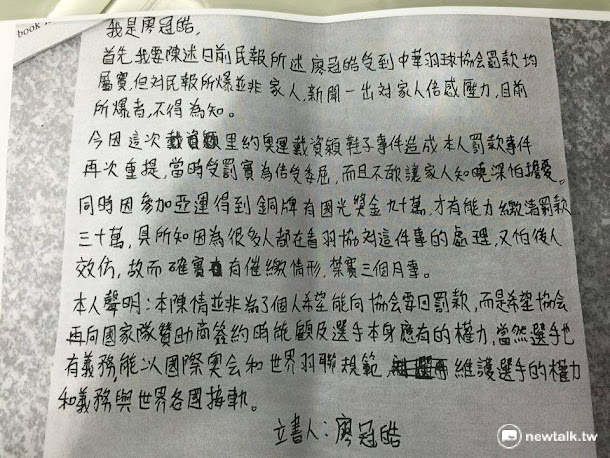 book
我是廖冠皓,
首先,我要陳述日前民報所述廖冠皓受到中華羽球協會罰款均
屬實,但对民報所爆並非家人,新聞一出对家人倍感壓力,目前
所爆者,不得為知。
今因這次戴資穎里約奧運戴資穎鞋子事件造成本人罰款事件
再次重提,當時受罰實為倍受委屈,而且不敢讓家人知曉深怕擔憂。
同時因參加亞運得到銅牌有國光獎金九十萬,才有能力繳清罰款
三十萬,具所知因為很多人都在看羽協对這件事的處理,又怕後人
效仿,故而確實有催繳情形,禁賽三個月事。
本人聲明:本陳情並非為了個人希望能向協會要回罰款,而是希望協會
再向國家隊贊助商簽約時能顧及選手本身應有的權力,當然選手也
有義務,能以國際奧会和世界羽聯規範 維護選手的權力
和義務與世界各國接軌。
立書人:廖冠皓
newtalk.tw